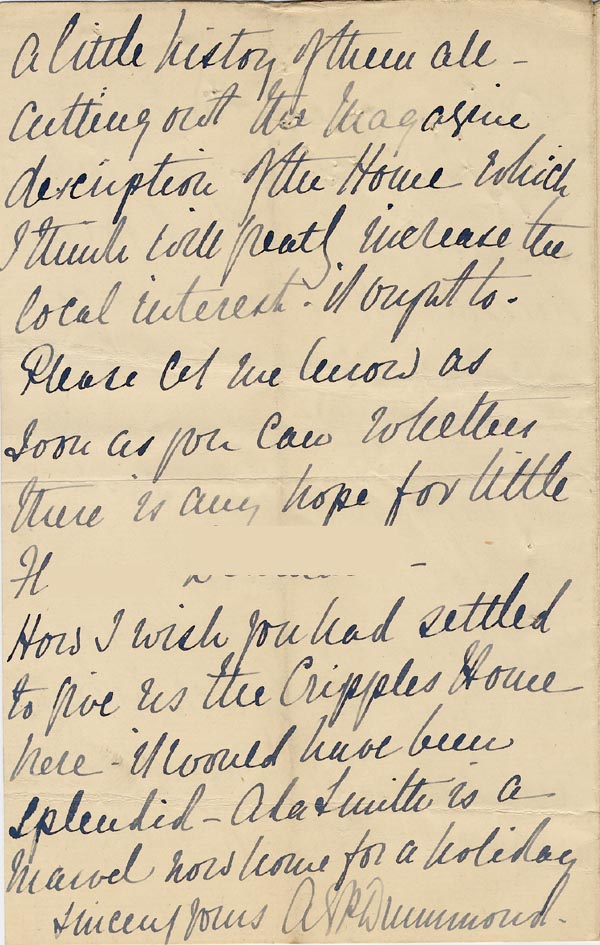 A little history of them all -
Cutting out the Magazine
description of the Home which
I think will greatly increase the
local interest - it ought to.
Please let me know as
soon as you can whether
there is any hope for little
H
How I wish you had settled
to give us the Cripples Home
here - it would have been
splendid - Ada Smith is a
marvel now home for a holiday
sincerely yours Drummond.